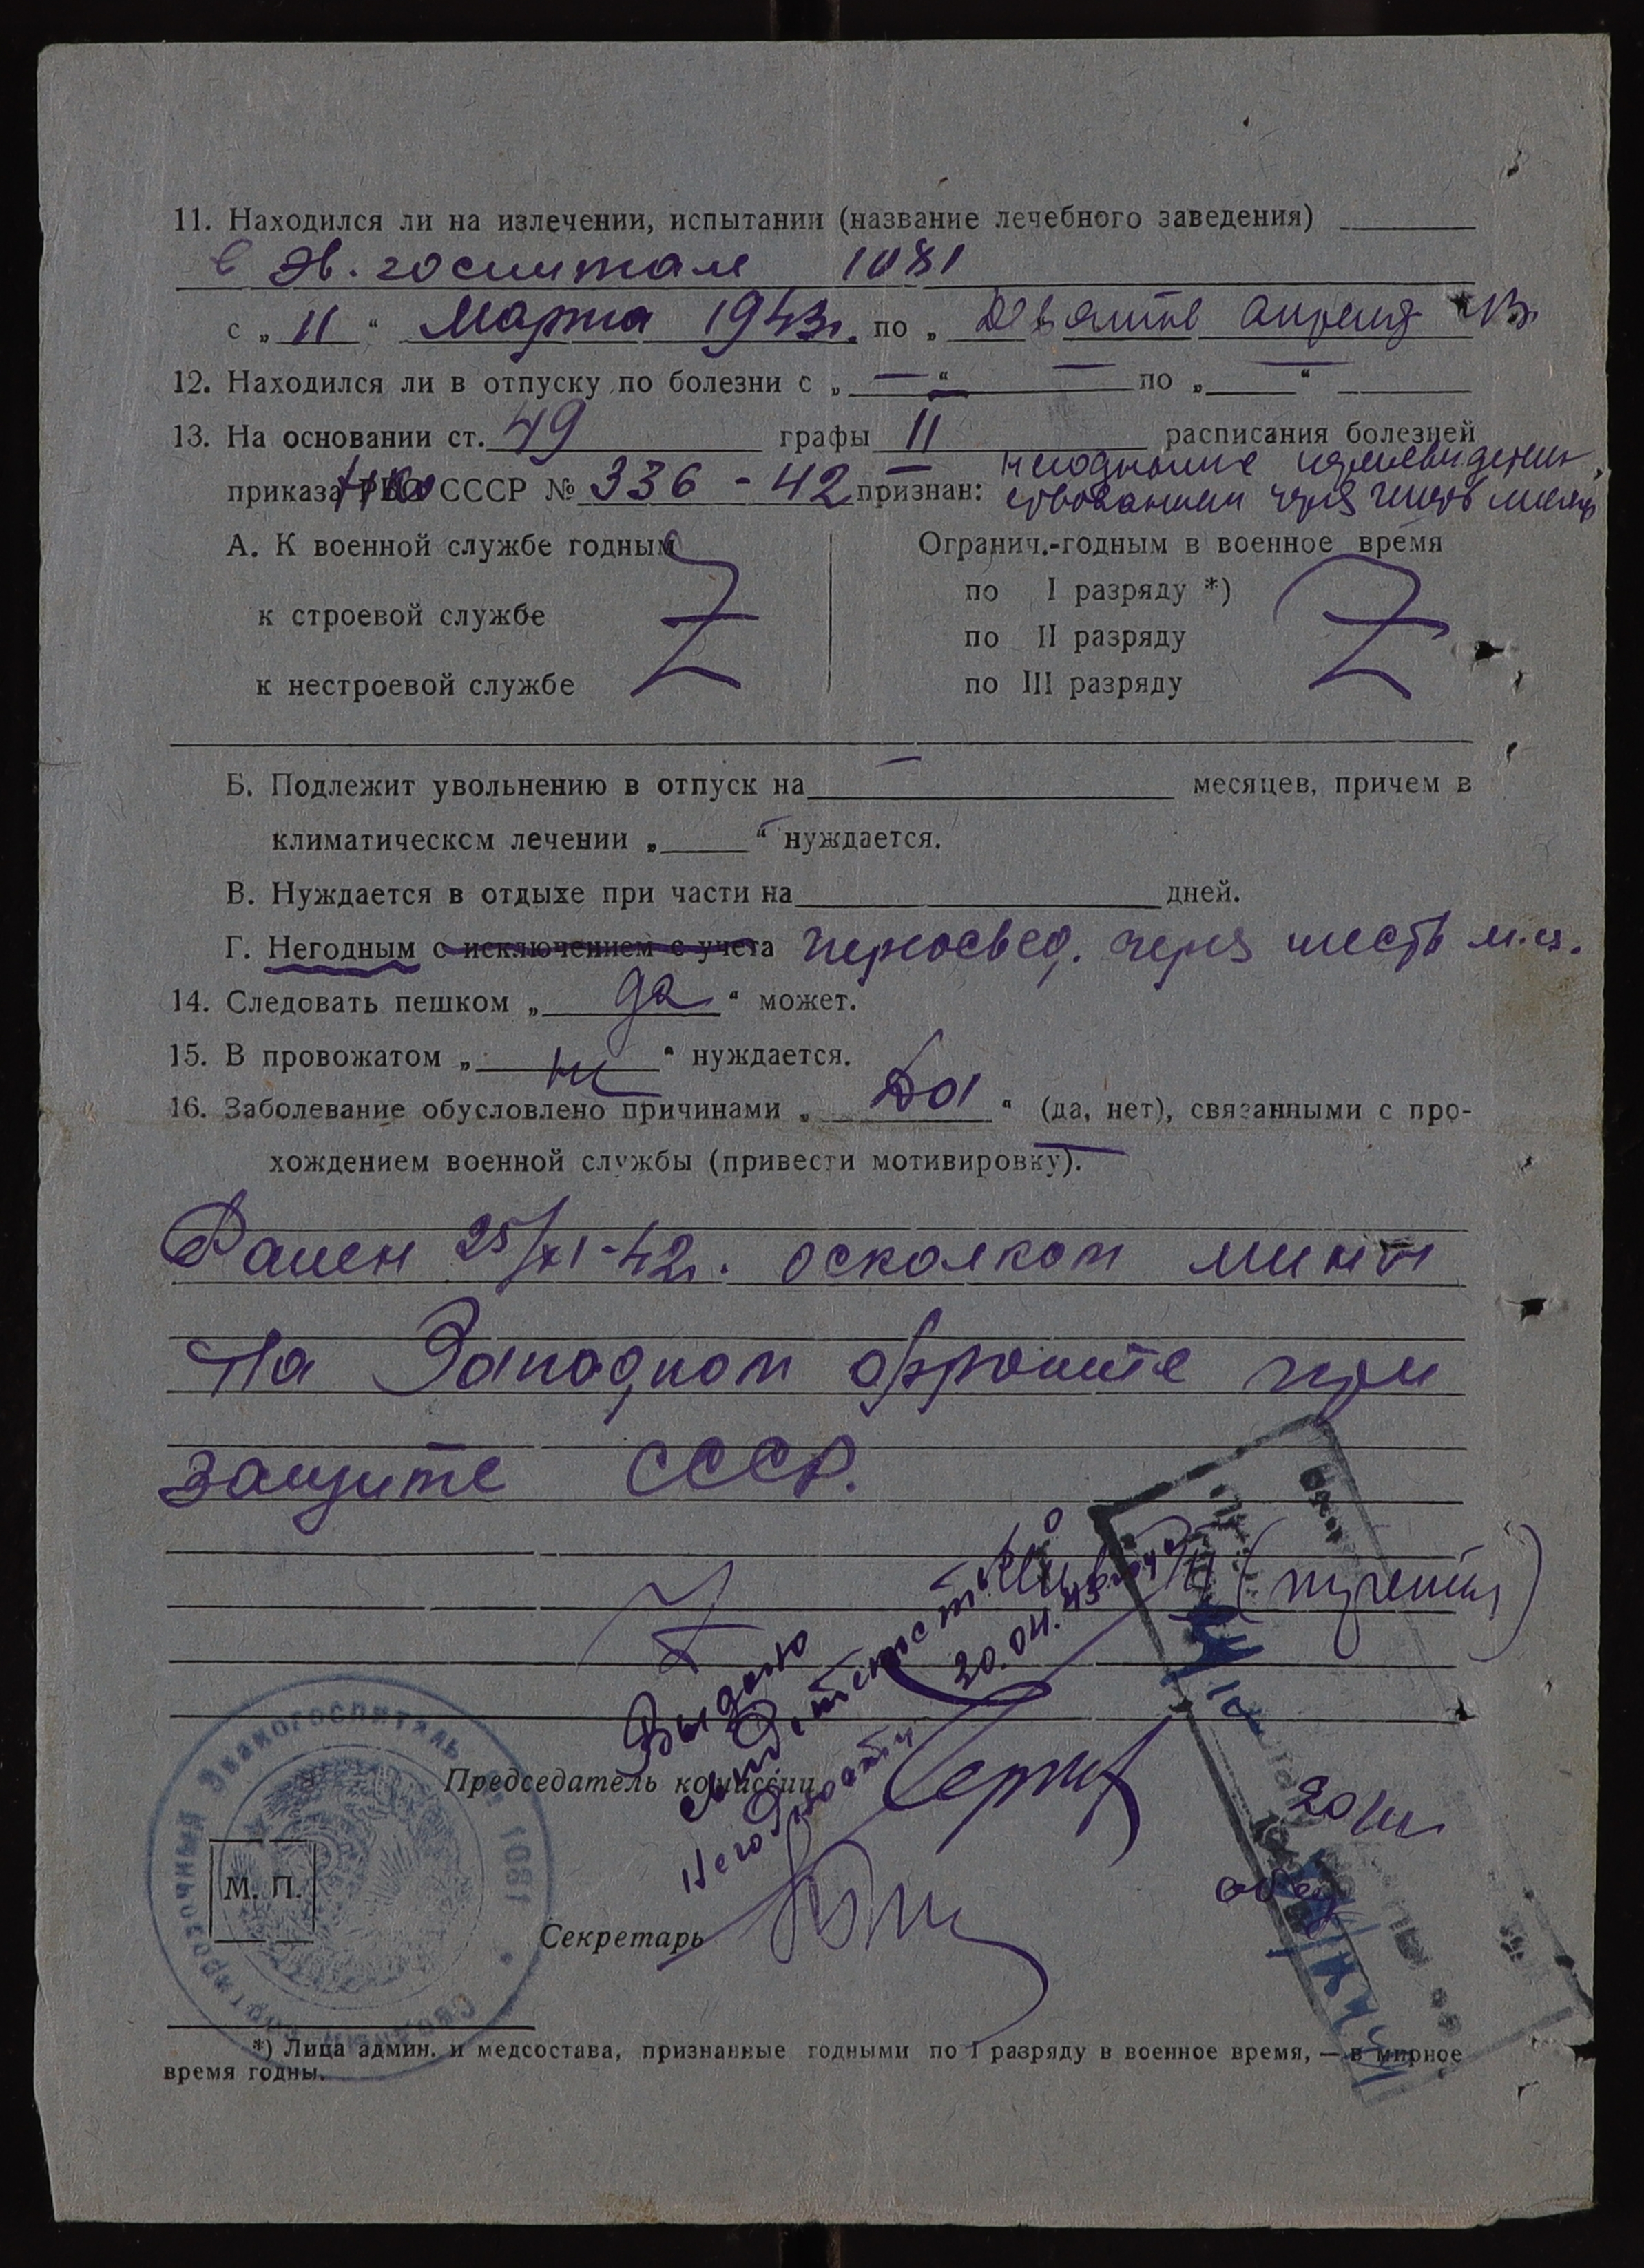 11. Находился ли на излечении, испытании (название лечебного заведения)
в Эв. госпитале 1081
с „ 11 “ Марта 1943г. по „ Девятое апреля 43г.
12. Находился ли в отпуску по болезни с „ — “ — по „ — “
13. На основании ст. 49 графы II расписания болезней
приказа НКО СССР № 336 - 42 признан: негодным с переосвидетель-
ствованием через шесть месяц
А. К военной службе годным
Огранич.-годным в военное время
по I разряду *)
к строевой службе
по II разряду
к нестроевой службе
по III разряду
Б. Подлежит увольнению в отпуск на — месяцев, причем в
климатическом лечении „ — “ нуждается.
В. Нуждается в отдыхе при части на дней.
Г. Негодным с исключением с учета переосвед. через шесть м-ц.
14. Следовать пешком „ да “ может.
15. В провожатом „ не “ нуждается.
16. Заболевание обусловлено причинами „ Да “ (да, нет), связанными с про-
хождением военной службы (привести мотивировку).
Ранен 25/XI-42г. осколком мины
На Западном фронте при
защите СССР.
Выдано
свидетельство
негодности
20.04.43
Председатель комиссии
М. П.
Секретарь
Эвакогоспиталь 1081
*) Лица админ. и медсостава, признанные годными по I разряду в военное время, — в мирное
время годны.